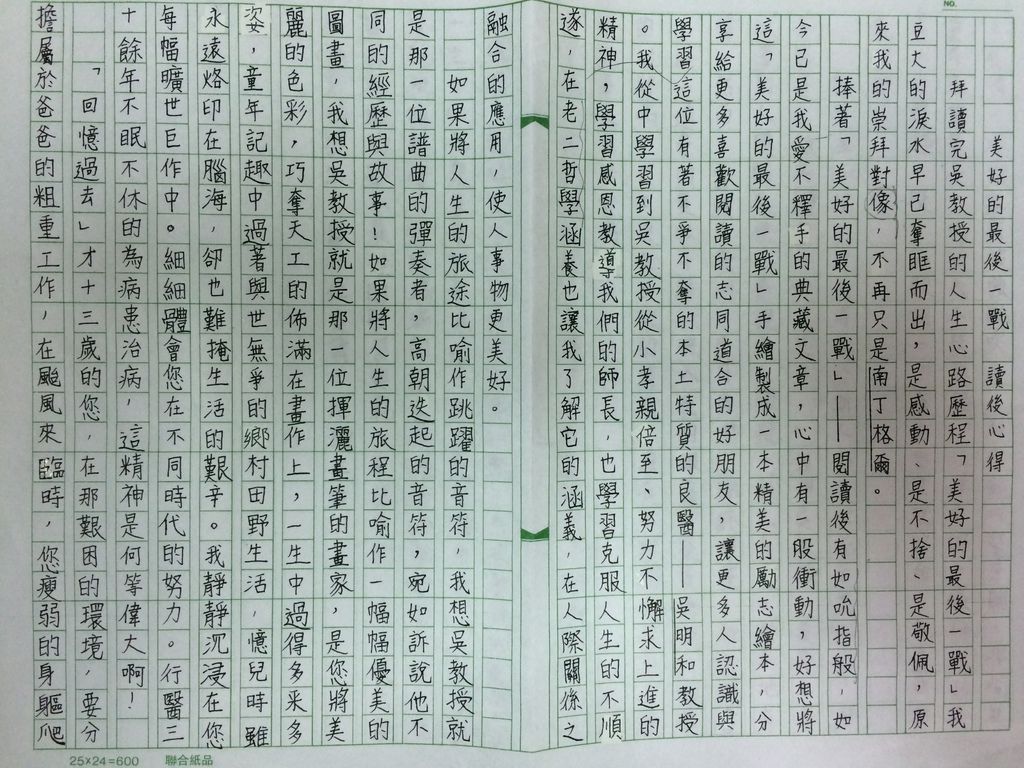 NO.
美好的最後一戰　讀後心得
拜讀完吳教授的人生心路歷程「美好的最後一戰」我
豆大的淚水早已奪眶而出，是感動、是不捨、是敬佩，原
來我的崇拜對像，不再只是南丁格爾。
捧著「美好的最後一戰」——閱讀後有如吮指般，如
今已是我愛不釋手的典藏文章，心中有一股衝動，好想將
這「美好的最後一戰」手繪製成一本精美的勵志繪本，分
享給更多喜歡閱讀的志同道合的好朋友，讓更多人認識與
學習這位有著不爭不奪的本土特質的良醫——吳明和教授
。我從中學習到吳教授從小孝親倍至、努力不懈求上進的
精神，學習感恩教導我們的師長，也學習克服人生的不順
遂，在老二哲學涵養也讓我了解它的涵義，在人際關係之
融合的應用，使人事物更美好。
如果將人生的旅途比喻作跳躍的音符，我想吳教授就
是那一位譜曲的彈奏者，高朝迭起的音符，宛如訴說他不
同的經歷與故事！如果將人生的旅程比喻作一幅幅優美的
圖畫，我想吳教授就是那一位揮灑畫筆的畫家，是您將美
麗的色彩，巧奪天工的佈滿在畫作上，一生中過得多采多
姿，童年記趣中過著與世無爭的鄉村田野生活，憶兒時雖
永遠烙印在腦海，卻也難掩生活的艱辛。我靜靜沉浸在您
每幅曠世巨作中。細細體會您在不同時代的努力。行醫三
十餘年不眠不休的為病患治病，這精神是何等偉大啊！
「回憶過去」才十三歲的您，在那艱困的環境，要分
擔屬於爸爸的粗重工作，在颱風來臨時，您瘦弱的身軀爬
25×24=600　聯合紙品